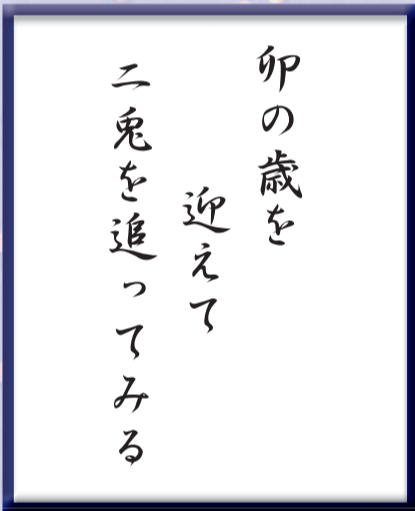 卯の歳を
迎えて
二兎を追ってみる